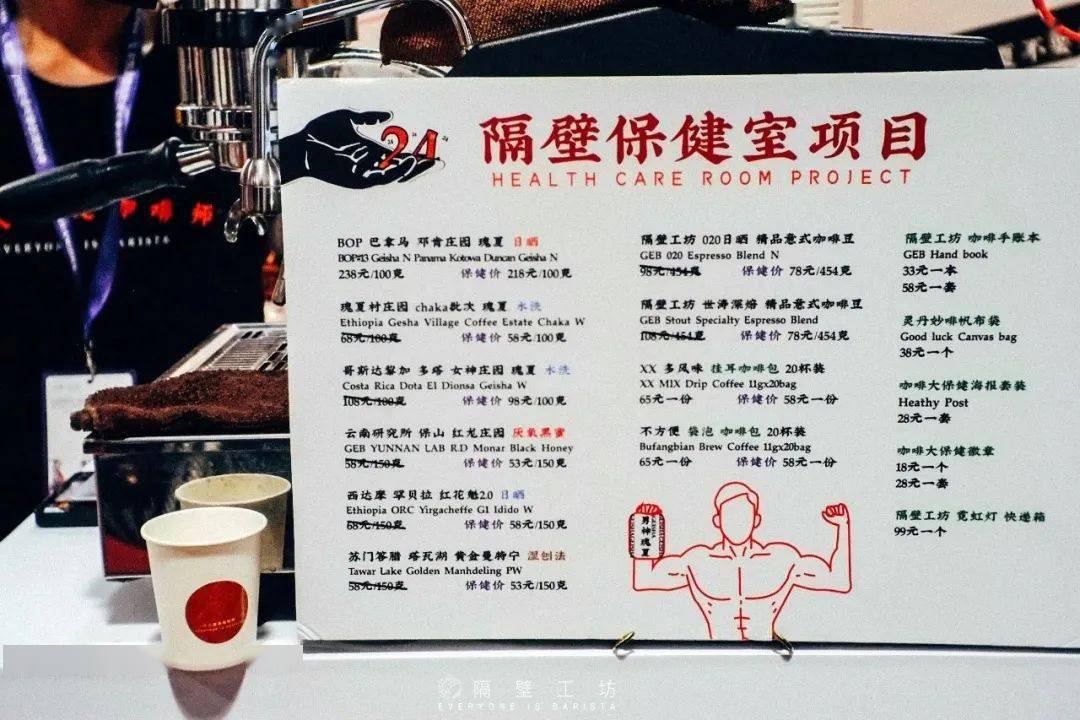 24
隔壁保健室项目
HEALTH CARE ROOM PROJECT
BOP 巴拿马 邓肯庄园 瑰夏 日晒
BOP#13 Geisha N Panama Kotowa Duncan Geisha N
238元/100克 保健价 218元/100克
瑰夏村庄园 chaka批次 瑰夏 水洗
Ethiopia Gesha Village Coffee Estate Chaka W
68元/100克 保健价 58元/100克
哥斯达黎加 多塔 女神庄园 瑰夏 水洗
Costa Rica Dota El Dionsa Geisha W
108元/100克 保健价 98元/100克
云南研究所 保山 红龙庄园 厌氧黑蜜
GEB YUNNAN LAB R.D Monar Black Honey
58元/150克 保健价 53元/150克
西达摩 罕贝拉 红花魁2.0 日晒
Ethiopia ORC Yirgacheffe G1 Idido W
68元/150克 保健价 58元/150克
苏门答腊 塔瓦湖 黄金曼特宁 湿刨法
Tawar Lake Golden Manhdeling PW
58元/150克 保健价 53元/150克
隔壁工坊 020日晒 精品意式咖啡豆
GEB 020 Espresso Blend N
98元/454克 保健价 78元/454克
隔壁工坊 世涛深焙 精品意式咖啡豆
GEB Stout Specialty Espresso Blend
108元/454克 保健价 78元/454克
XX 多风味 挂耳咖啡包 20杯装
XX MIX Drip Coffee 11gx20bag
65元一份 保健价 58元一份
不方便 袋泡 咖啡包 20杯装
Bufangbian Brew Coffee 11gx20bag
65元一份 保健价 58元一份
隔壁工坊 咖啡手账本
GEB Hand book
33元一本
58元一套
灵丹妙啡帆布袋
Good luck Canvas bag
38元一个
咖啡大保健海报套装
Heathy Post
28元一套
咖啡大保健徽章
18元一个
28元一套
隔壁工坊 霓虹灯 快递箱
99元一个
男神瑰夏
GEISHA
咖啡师
EVERYONE IS BARISTA
隔壁工坊
EVERYONE IS BARISTA